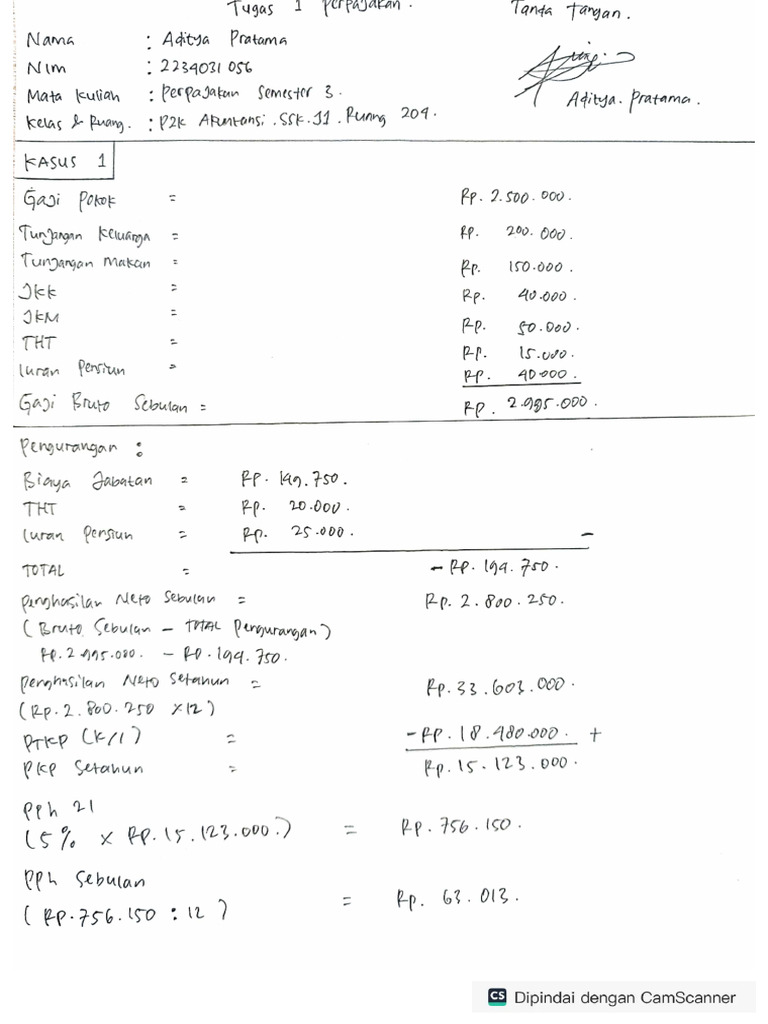 Tugas 1 Perpajakan.
Tanda Tangan.
Nama : Aditya Pratama
Nim : 2234031056
Mata Kuliah : Perpajakan Semester 3.
Aditya. Pratama.
Kelas & Ruang. : P2K Akuntansi. SSK. J1. Ruang 204.
KASUS 1
Gaji Pokok = Rp. 2.500.000.
Tunjangan Keluarga = Rp. 200.000.
Tunjangan Makan = Rp. 150.000.
JKK = Rp. 40.000.
JKM = Rp. 50.000.
THT = Rp. 15.000.
Iuran Pensiun = Rp. 40.000.
Gaji Bruto Sebulan = Rp. 2.995.000.
Pengurangan :
Biaya Jabatan = Rp. 149.750.
THT = Rp. 20.000.
Iuran Pensiun = Rp. 25.000. –
TOTAL = – Rp. 194.750.
Penghasilan Neto Sebulan = Rp. 2.800.250.
(Bruto Sebulan – TOTAL Pengurangan)
Rp. 2.995.000. – Rp. 194.750.
Penghasilan Neto Setahun = Rp. 33.603.000.
(Rp. 2.800.250 x 12)
PTKP (K/1) = – Rp. 18.480.000. +
PKP Setahun = Rp. 15.123.000.
PPh 21
(5% x Rp. 15.123.000.) = Rp. 756.150.
PPh Sebulan
(Rp. 756.150 : 12) = Rp. 63.013.
CS Dipindai dengan CamScanner